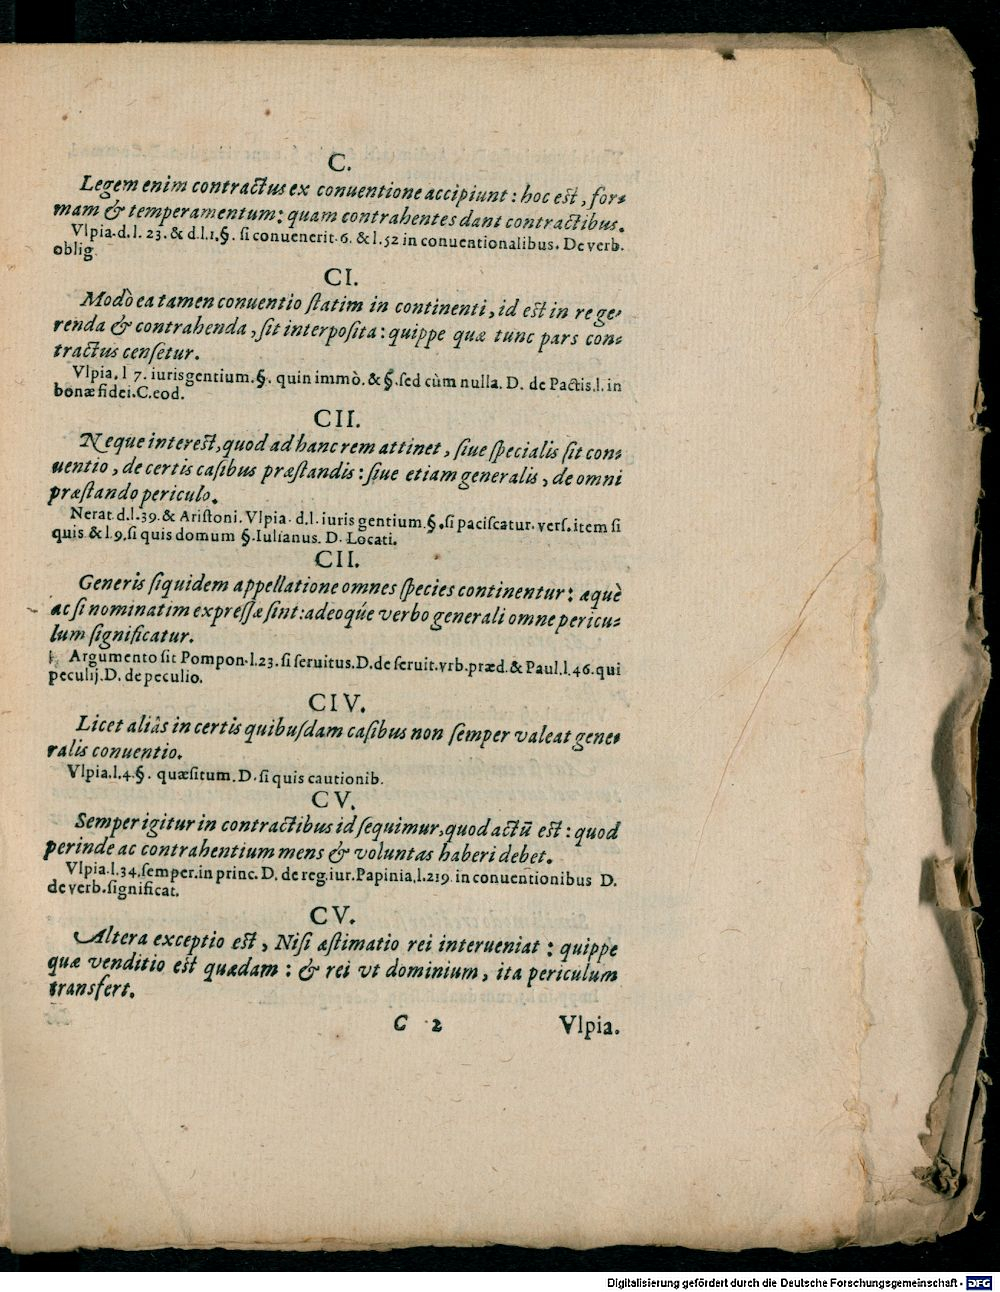 C.
Legem enim contractus ex conuentione accipiunt: hoc est, for-
mam & temperamentum: quam contrahentes dant contractibus.
Vlpia. d. l. 23. & d. l. 1. §. si conuenerit. 6. & l. 52 in conuentionalibus. De verb.
oblig.
CI.
Modò ea tamen conuentio statim in continenti, id est in re ge-
renda & contrahenda, sit interposita: quippe quæ tunc pars con-
tractus censetur.
Vlpia. l 7. iurisgentium. §. quin immò. & §. sed cùm nulla. D. de Pactis. l. in
bonæ fidei. C. eod.
CII.
Neque interest, quod ad hanc rem attinet, siue specialis sit con-
uentio, de certis casibus præstandis: siue etiam generalis, de omni
præstando periculo.
Nerat. d. l. 39. & Aristoni. Vlpia. d. l. iuris gentium. §. si paciscatur. vers. item si
quis & l 9. si quis domum §. Iulianus. D. Locati.
CII.
Generis siquidem appellatione omnes species continentur: æquè
ac si nominatim expressæ sint: adeoq́ue verbo generali omne pericu-
lum significatur.
Argumento sit Pompon. l. 23. si seruitus. D. de seruit. vrb. præd. & Paul. l. 46. qui
peculij. D. de peculio.
CIV.
Licet aliâs in certis quibusdam casibus non semper valeat gene-
ralis conuentio.
Vlpia. l. 4. §. quæsitum. D. si quis cautionib.
CV.
Semper igitur in contractibus id sequimur, quod actū est: quod
perinde ac contrahentium mens & voluntas haberi debet.
Vlpia. l. 34. semper. in princ. D. de reg. iur. Papinia. l. 219. in conuentionibus D.
de verb. significat.
CV.
Altera exceptio est, Nisi æstimatio rei interueniat: quippe
quæ venditio est quædam: & rei vt dominium, ita periculum
transfert.
C 2 Vlpia.
Digitalisierung gefördert durch die Deutsche Forschungsgemeinschaft - DFG